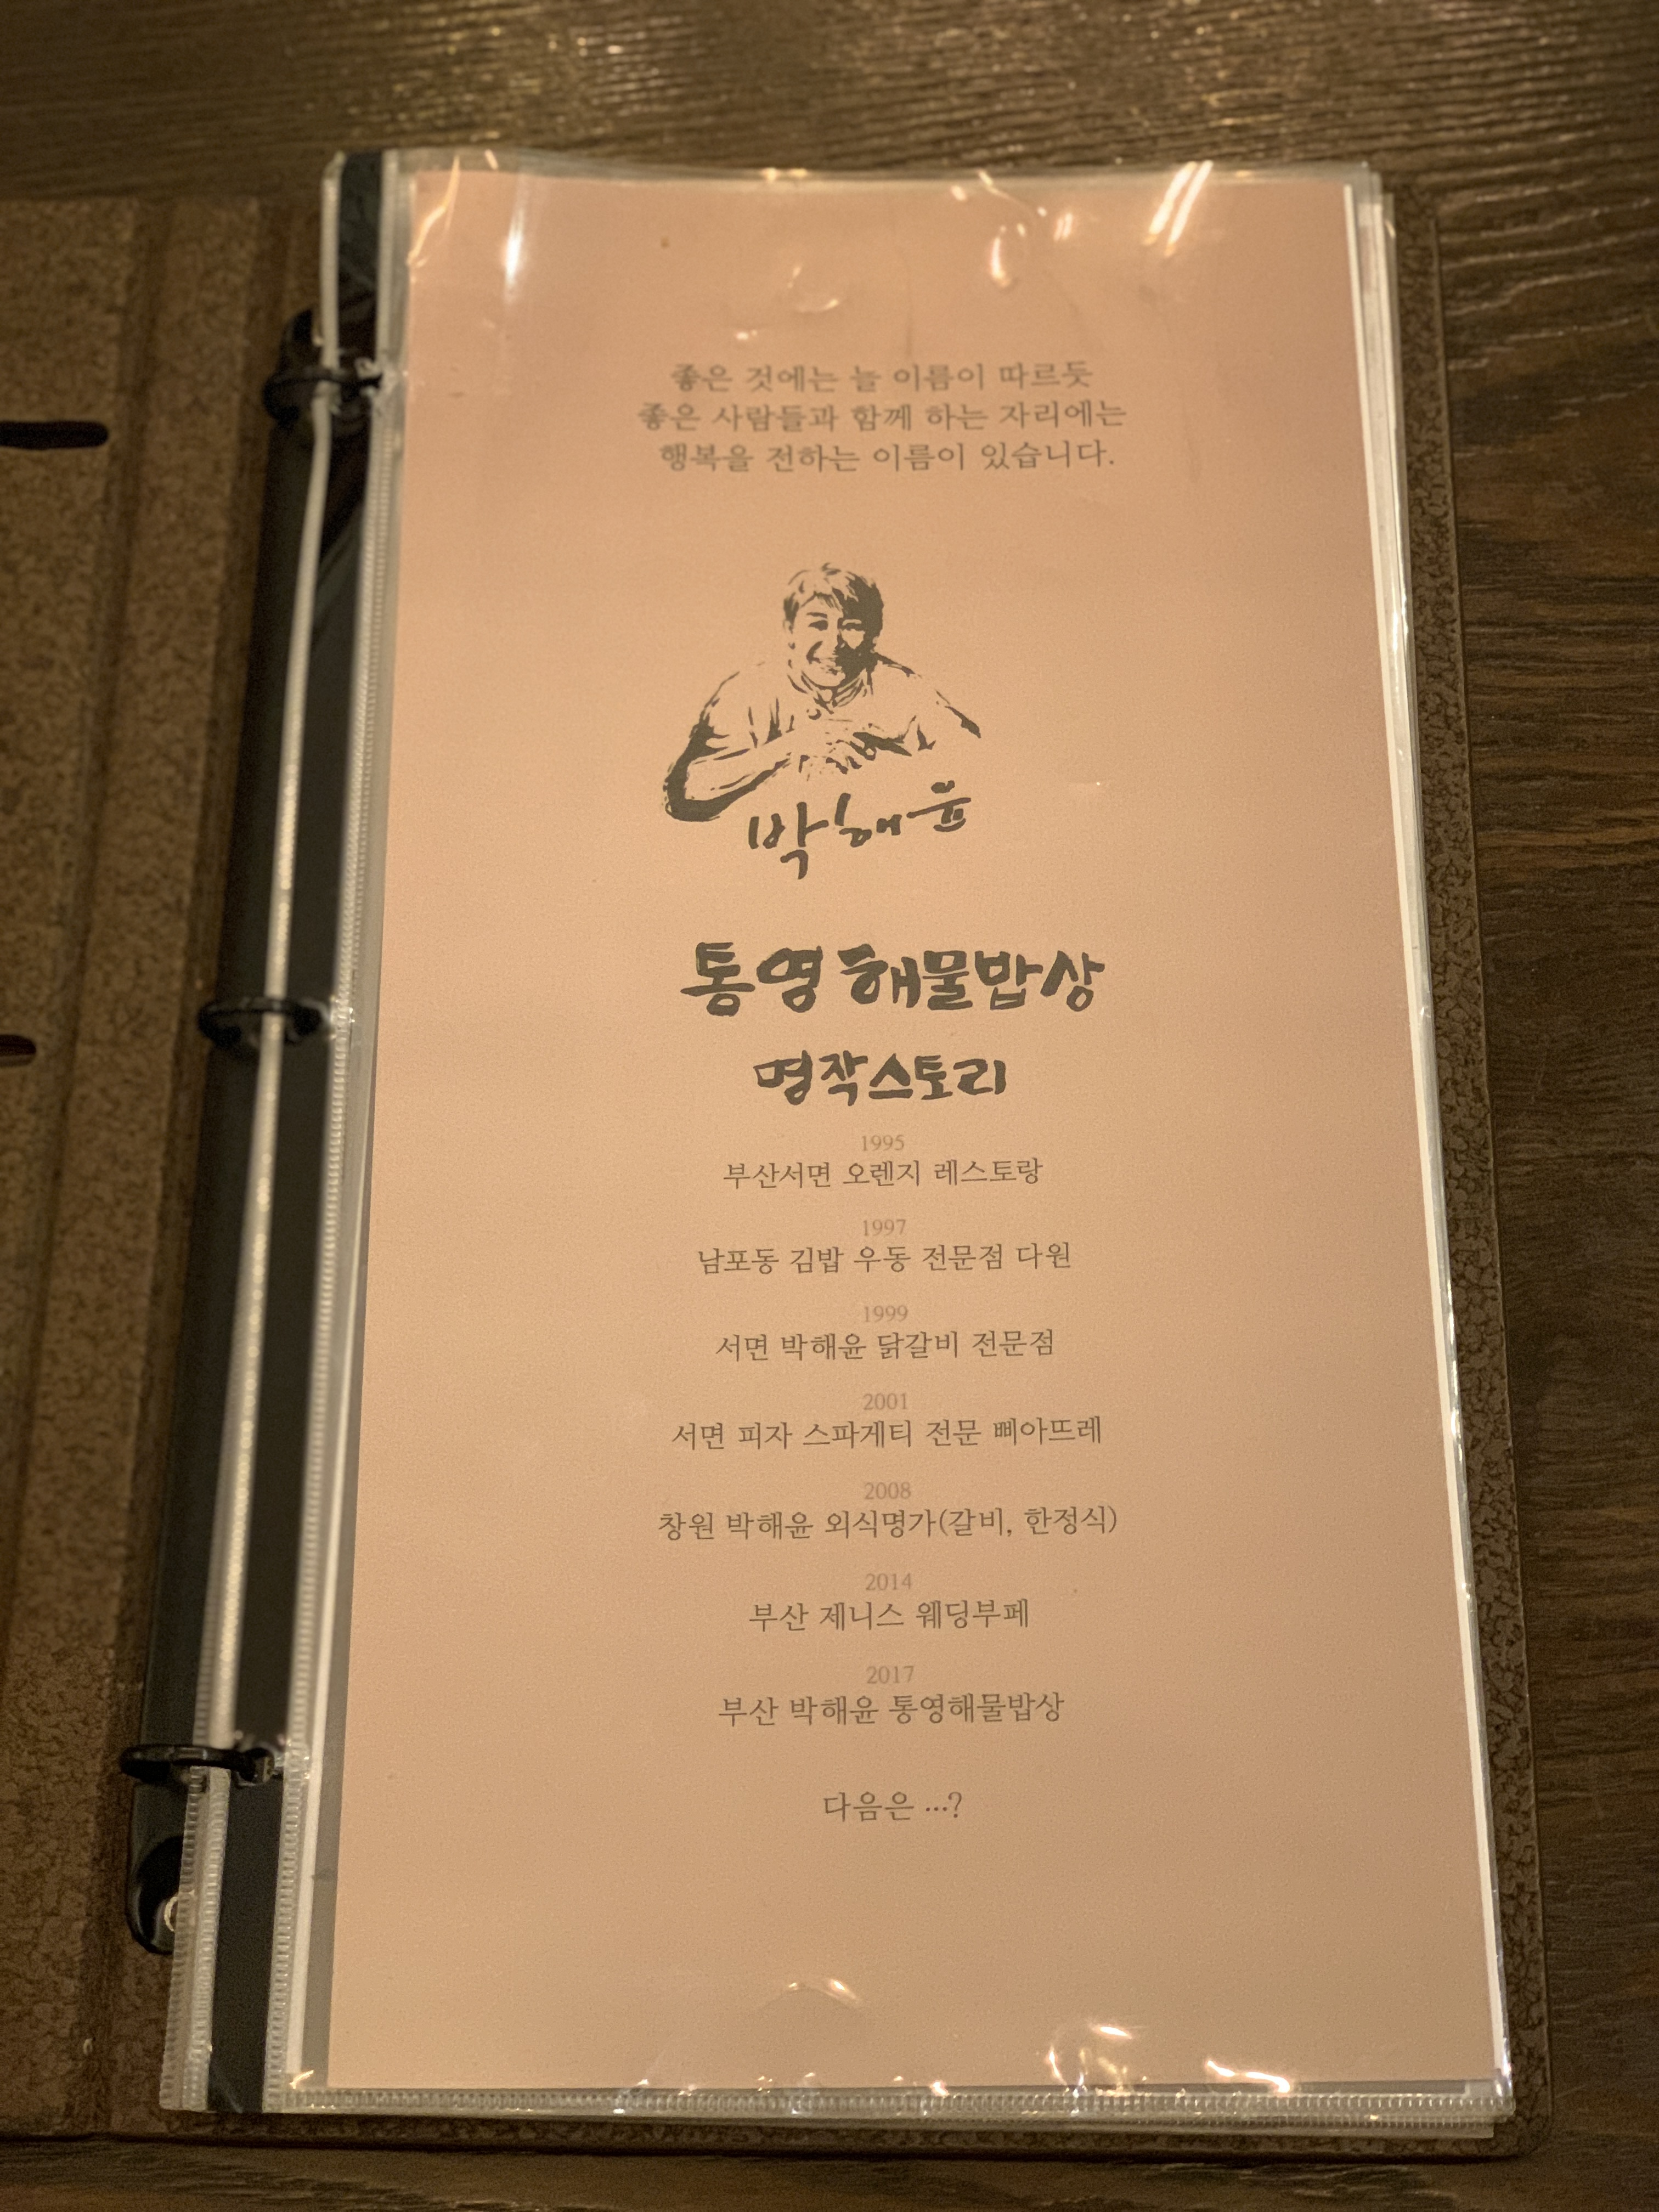 좋은 것에는 늘 이름이 따르듯
좋은 사람들과 함께 하는 자리에는
행복을 전하는 이름이 있습니다.
박해윤
통영 해물밥상
명작스토리
1995
부산서면 오렌지 레스토랑
1997
남포동 김밥 우동 전문점 다원
1999
서면 박해윤 닭갈비 전문점
2001
서면 피자 스파게티 전문 삐아뜨레
2008
창원 박해윤 외식명가(갈비, 한정식)
2014
부산 제니스 웨딩부페
2017
부산 박해윤 통영해물밥상
다음은 ···?